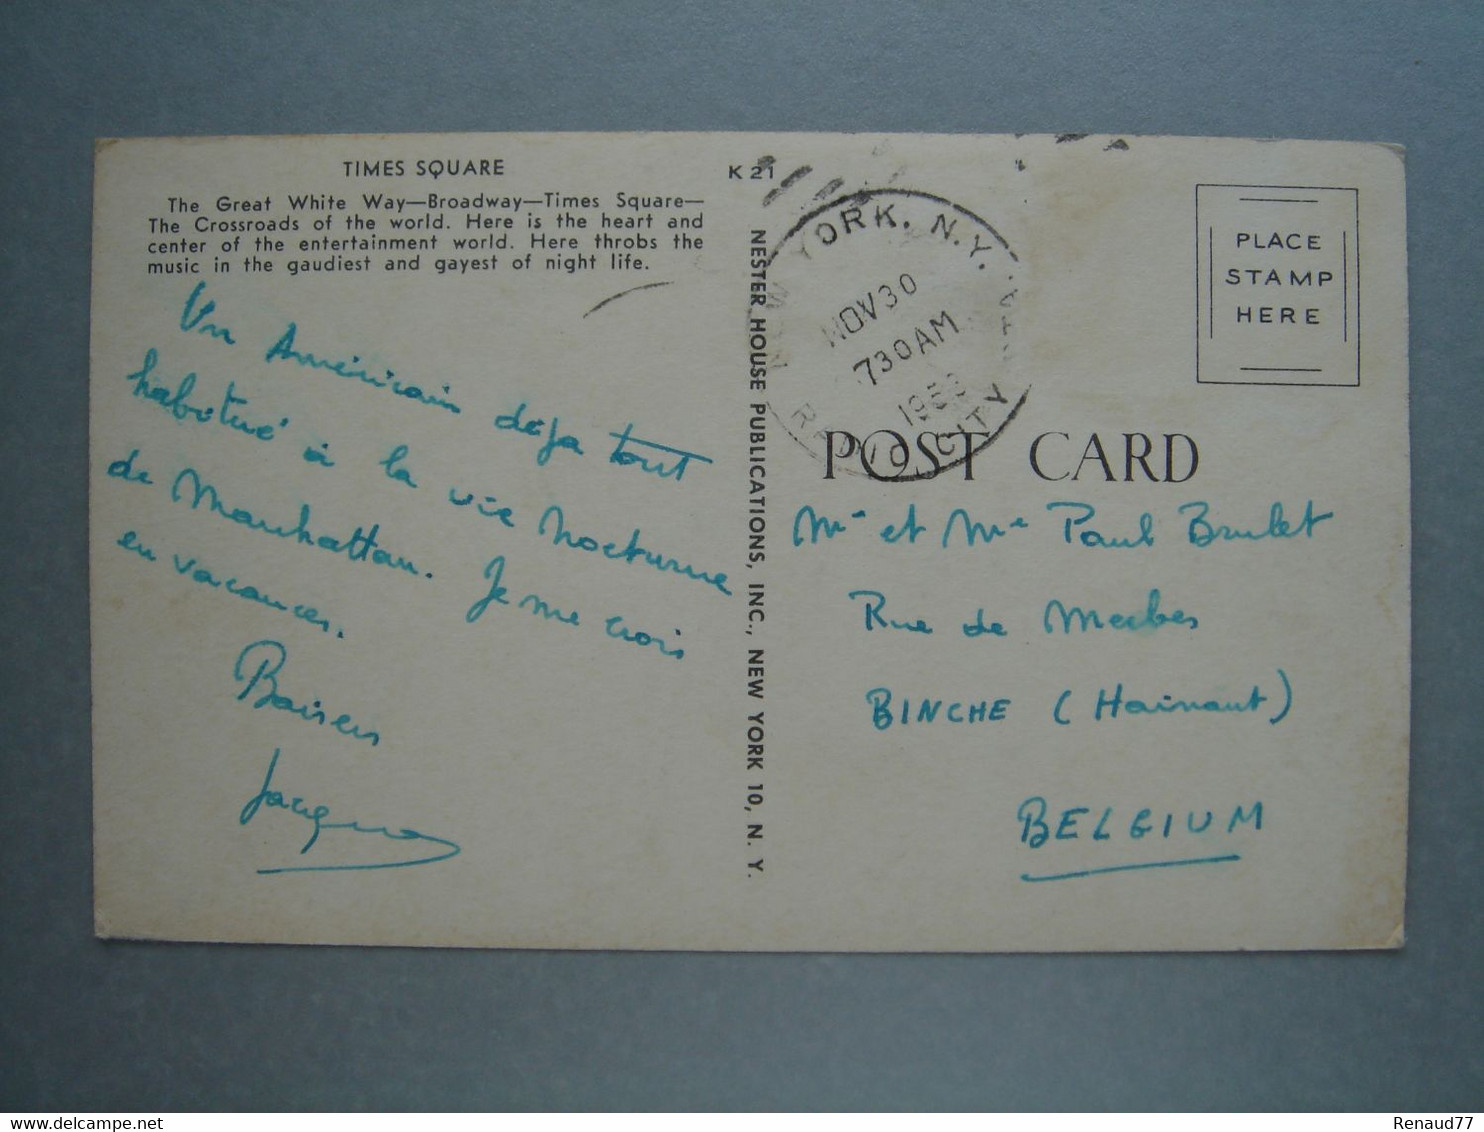 TIMES SQUARE
The Great White Way—Broadway—Times Square—
The Crossroads of the world. Here is the heart and
center of the entertainment world. Here throbs the
music in the gaudiest and gayest of night life.
Un Américain déja tout
habitué à la vie nocturne
de Manhattan. Je me crois
en vacances.
Baisers
K 21
NESTER HOUSE PUBLICATIONS, INC., NEW YORK 10, N. Y.
YORK, N.Y.
NOV 30
730 AM
RADIO CITY
PLACE
STAMP
HERE
POST CARD
Mr et Me Paul Brulet
Rue de Merbes
BINCHE (Hainaut)
BELGIUM
delcampe.net
Renaud77